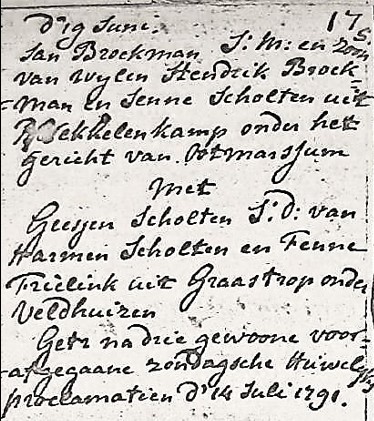 d'19 Juni. 175.
Jan Broekman J: M: en zoon
van wylen Hendrik Broek-
-man en Jenne Scholten uit
Hekkelenkamp onder het
Gericht van Otmarssum
met
Geesjen Scholten J: D: van
Harmen Scholten en Fenne
Frielink uit Graastrop onder
Veldhuizen
Getr na drie gewoone voor-
-afgegaane zondagsche Huwelyks
proclamatien d' 14 Juli 1791.